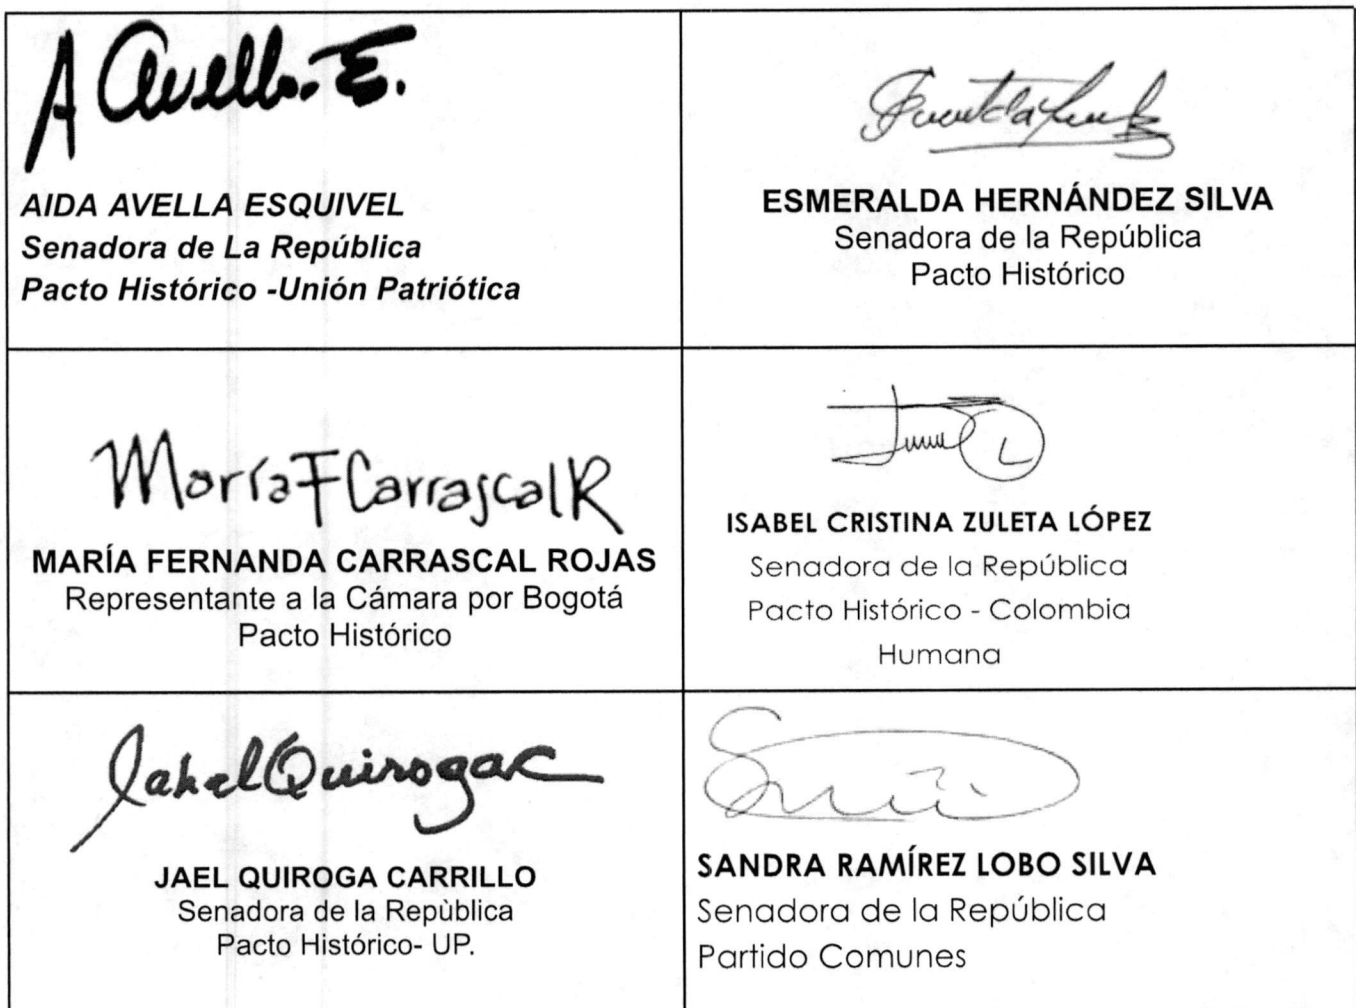 A Avella. E.
AIDA AVELLA ESQUIVEL
Senadora de La República
Pacto Histórico -Unión Patriótica
ESMERALDA HERNÁNDEZ SILVA
Senadora de la República
Pacto Histórico
María F Carrascal R
MARÍA FERNANDA CARRASCAL ROJAS
Representante a la Cámara por Bogotá
Pacto Histórico
ISABEL CRISTINA ZULETA LÓPEZ
Senadora de la República
Pacto Histórico - Colombia
Humana
Jahel Quiroga C
JAEL QUIROGA CARRILLO
Senadora de la Repùblica
Pacto Histórico- UP.
SANDRA RAMÍREZ LOBO SILVA
Senadora de la República
Partido Comunes